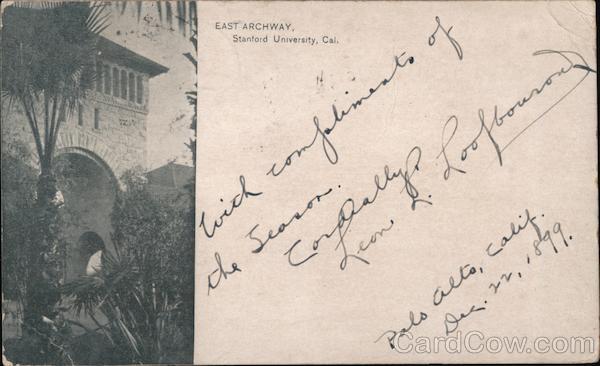 EAST ARCHWAY,
Stanford University, Cal.
With compliments of
the Season.
Cordially,
Leon L. Loofbourow
Palo Alto, Calif.
Dec. 22, 1899.
CardCow.com